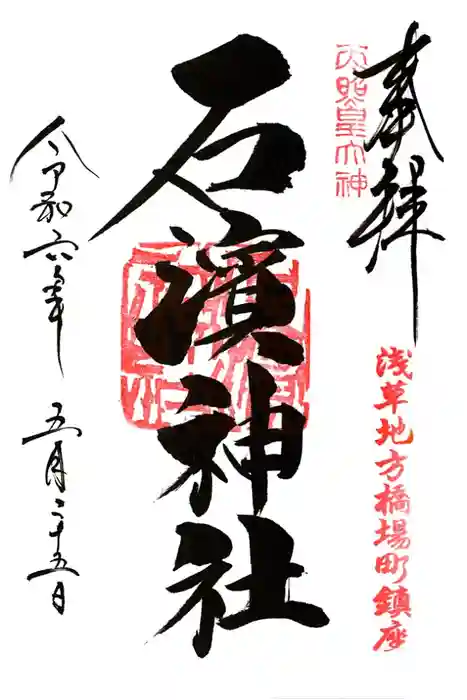 奉拝
天照皇大神
浅草地方橋場町鎮座
石濱神社
令和六年 五月二十五日